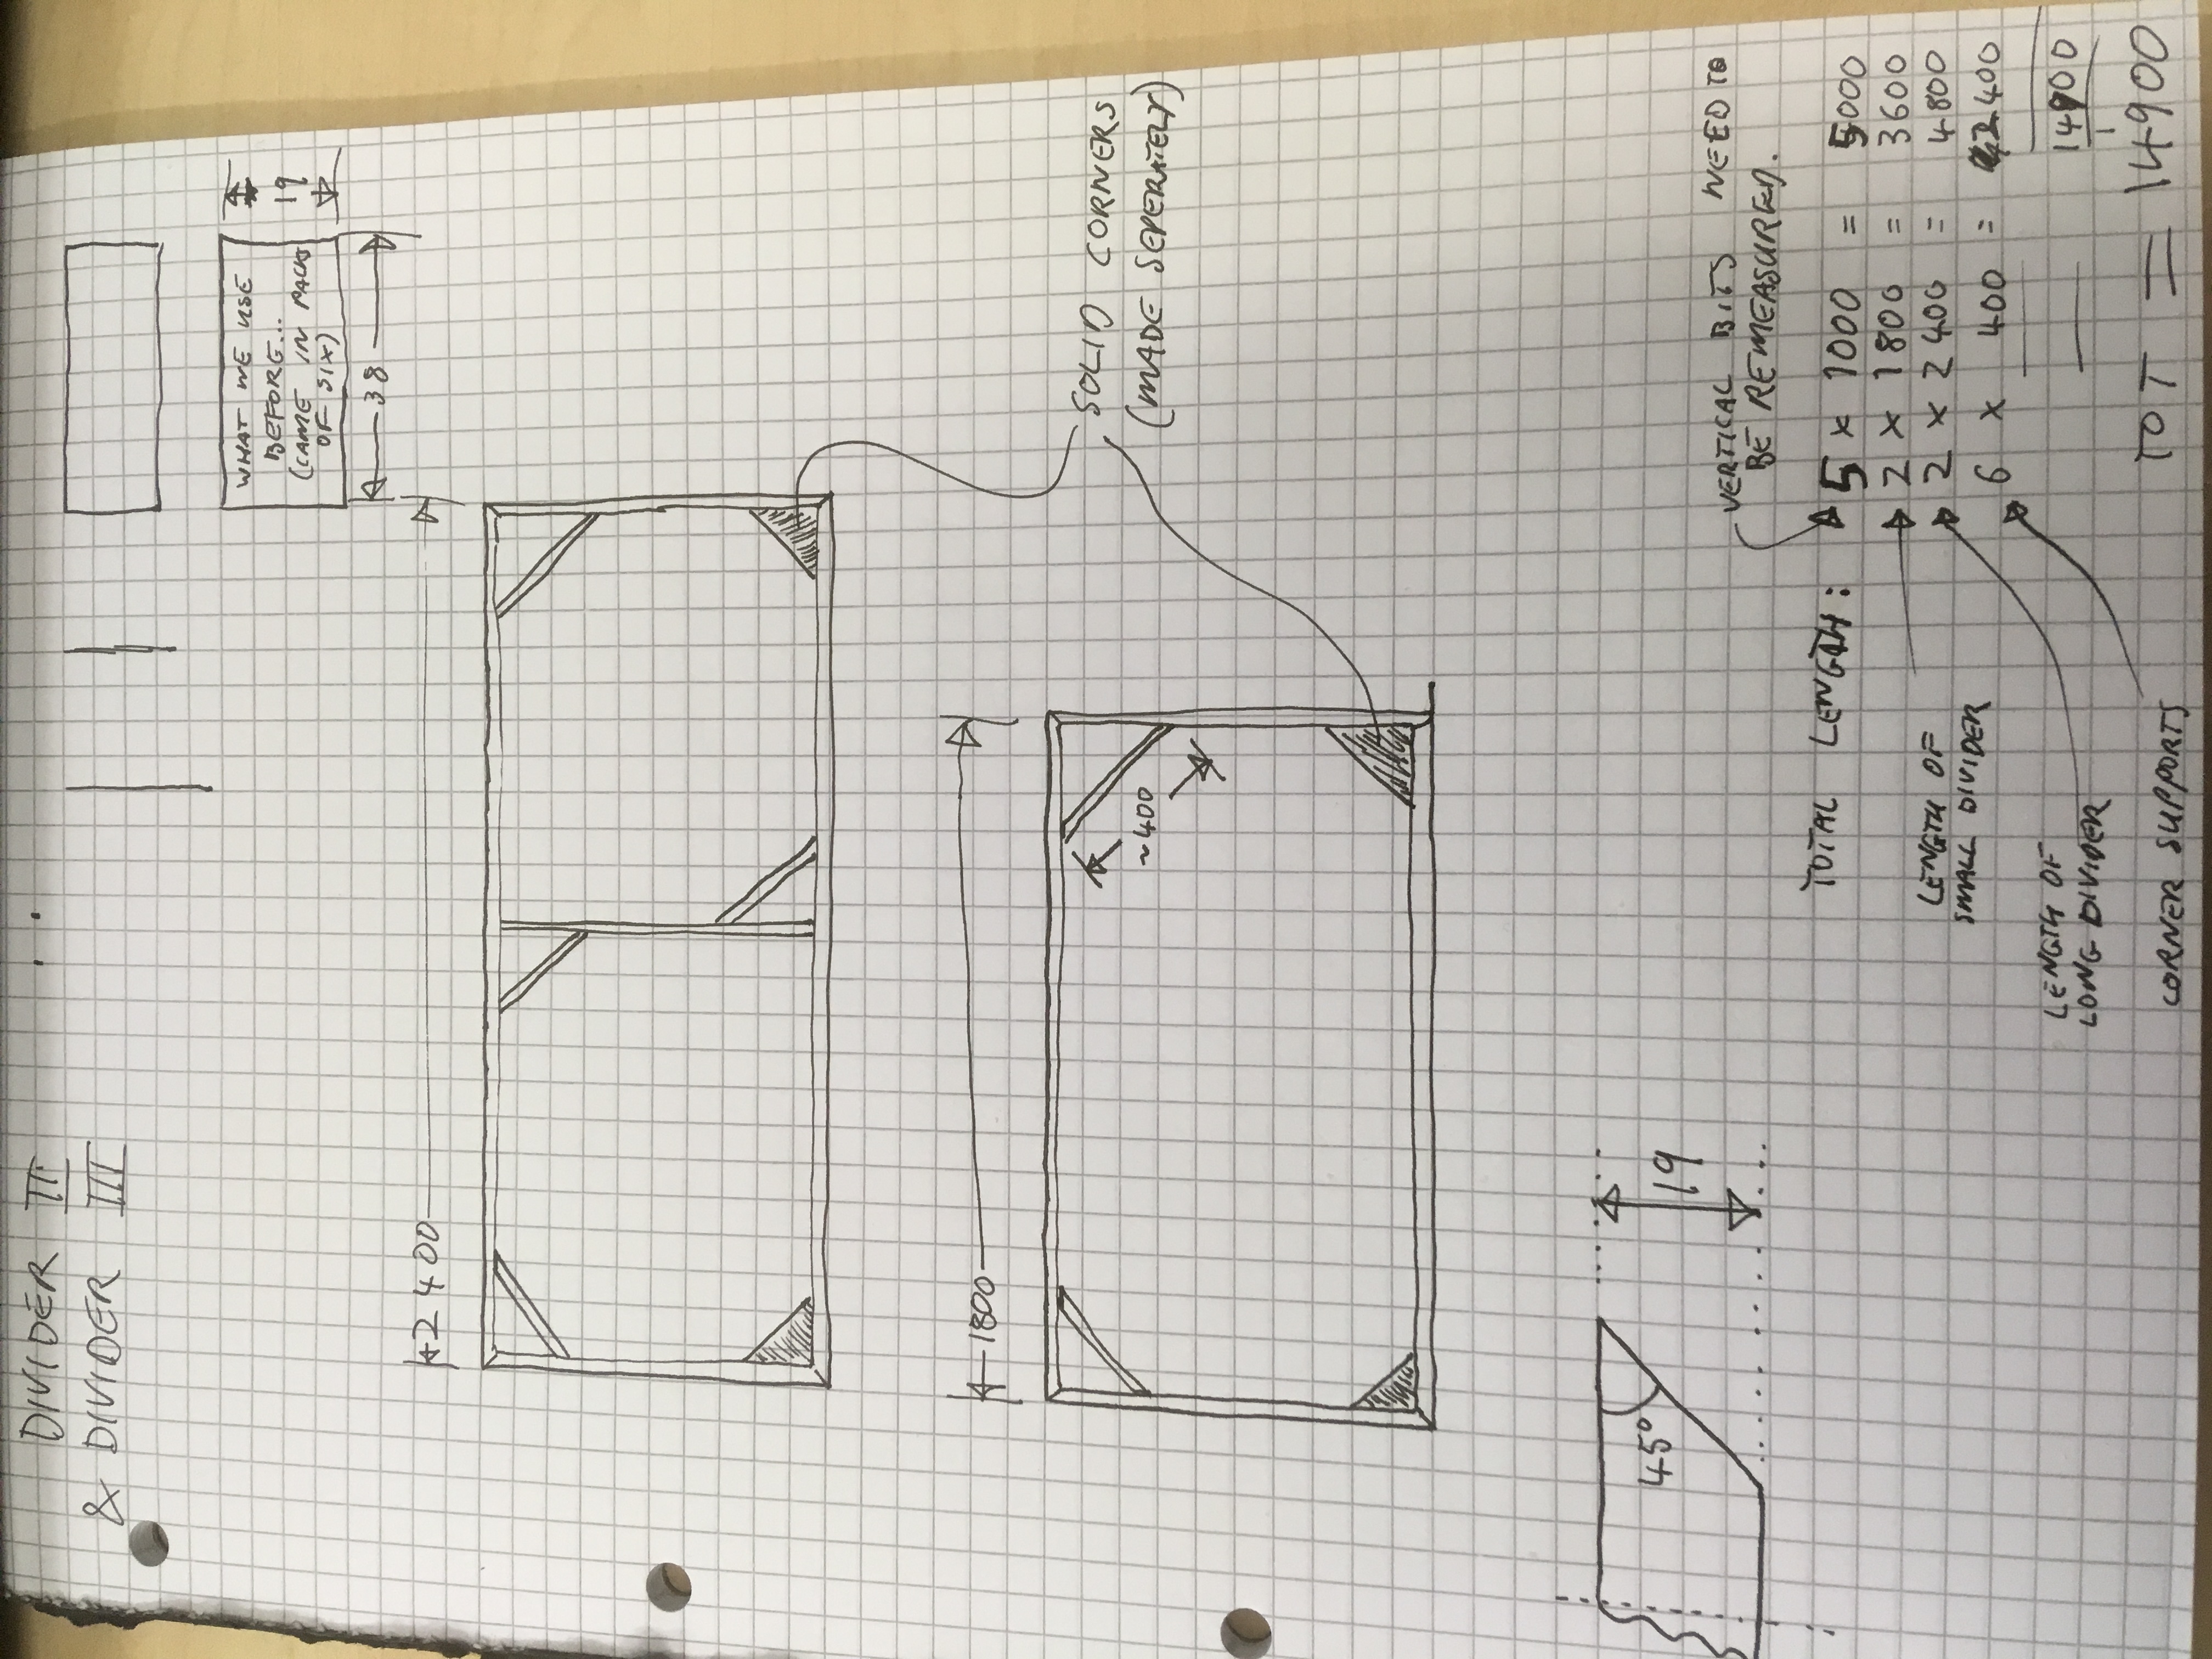 DIVIDER II
& DIVIDER III
WHAT WE USE
BEFORE...
(CAME IN PACKS
OF SIX)
19
38
2400
SOLID CORNERS
(MADE SEPERATELY)
1800
~400
45°
19
VERTICAL BITS NEED TO
BE REMEASURED.
TOTAL LENGTH:
5 x 1000 = 5000
2 x 1800 = 3600
2 x 2400 = 4800
6 x 400 = 2400
14900
1
LENGTH OF
SMALL DIVIDER
LENGTH OF
LONG DIVIDER
CORNER SUPPORTS
TOT = 14900